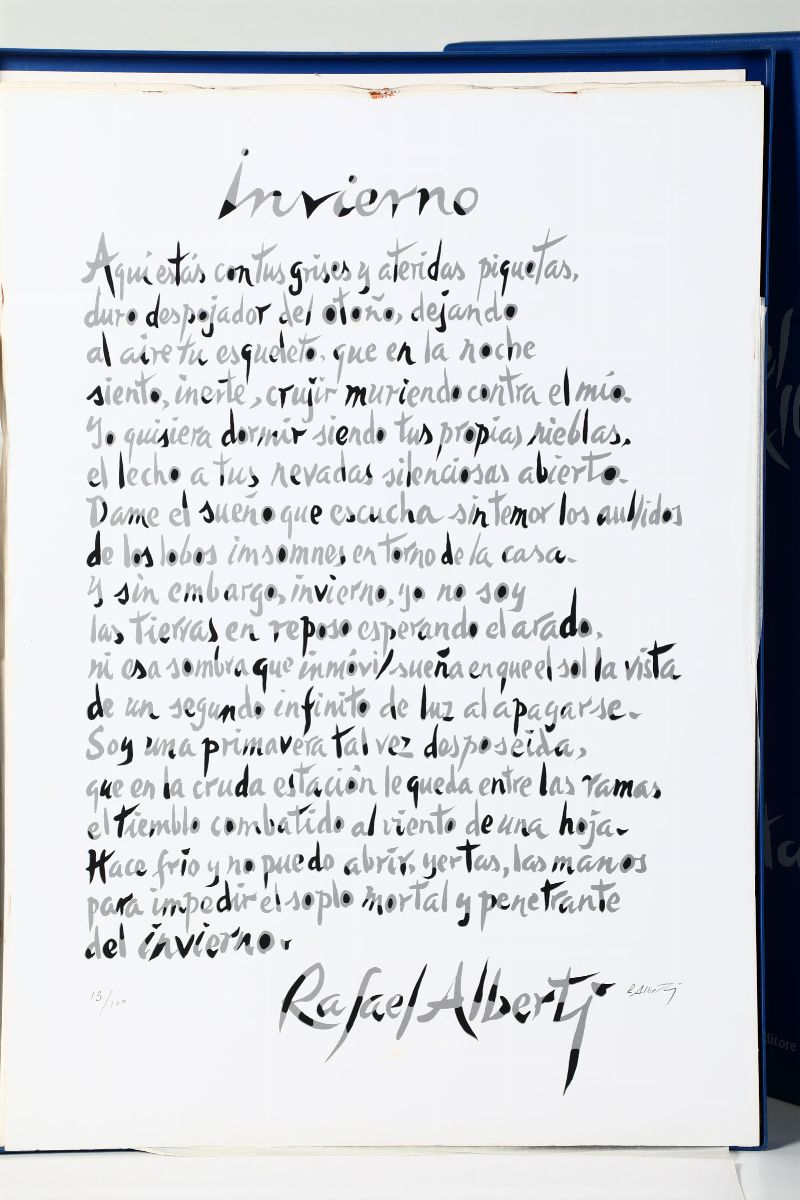 invierno
Aquí estás con tus grises y ateridas piquetas,
duro despojador del otoño, dejando
al aire tu esqueleto, que en la noche
siento, inerte, crujir muriendo contra el mío.
Yo quisiera dormir siendo tus propias nieblas,
el lecho a tus nevadas silenciosas abierto.
Dame el sueño que escucha sin temor los aullidos
de los lobos imsomnes en torno de la casa.
Y sin embargo, invierno, yo no soy
las tierras en reposo esperando el arado,
ni esa sombra que inmóvil sueña en que el sol la vista
de un segundo infinito de luz al apagarse.
Soy una primavera tal vez desposeída,
que en la cruda estación le queda entre las ramas
el tiemblo combatido al viento de una hoja.
Hace frío y no puedo abrir, yertas, las manos
para impedir el soplo mortal y penetrante
del invierno.
Rafael Alberti
13/100
R. Alberti
ditore